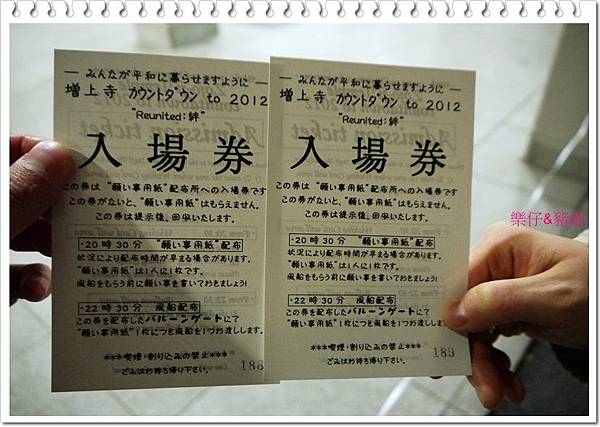 — みんなが平和に暮らせますように
増上寺 カウントダウン to 2012
"Reunited:絆"
入場券
この券は "願い事用紙"配布所への入場券です
この券がないと、"願い事用紙"はもらえません。
この券は提示後、回収いたします。
・20時30分 "願い事用紙"配布
状況により配布時間が早まる場合があります。
"願い事用紙"は1人に1枚です。
風船をもらう前に願い事を書いておきましょう!
・22時30分 風船配布
この券を配布したバルーンゲートにて
"願い事用紙"1枚につき風船を1つお渡しします。
***喫煙・割り込みの禁止***
ごみはお持ち帰り下さい。
188
— みんなが平和に暮らせますように —
増上寺 カウントダウン to 2012
"Reunited:絆"
入場券
この券は "願い事用紙"配布所への入場券です
この券がないと、"願い事用紙"はもらえません。
この券は提示後、回収いたします。
・20時30分 "願い事用紙"配布
状況により配布時間が早まる場合があります。
"願い事用紙"は1人に1枚です。
風船をもらう前に願い事を書いておきましょう!
・22時30分 風船配布
この券を配布したバルーンゲートにて
"願い事用紙"1枚につき風船を1つお渡しします。
***喫煙・割り込みの禁止***
ごみはお持ち帰り下さい。
189
樂仔&豬